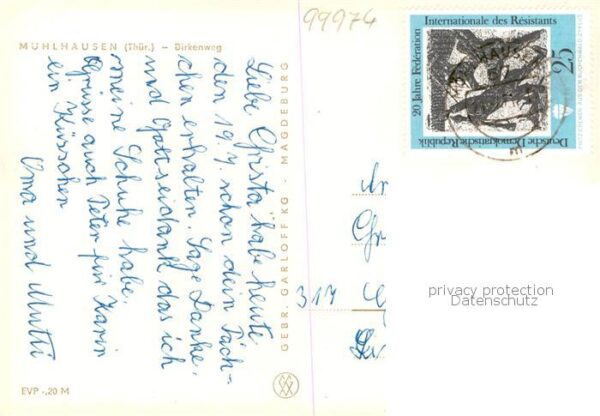 99974
MÜHLHAUSEN (Thür.) – Birkenweg
Liebe Christa habe heute
den 19.7. schon dein Päch-
chen erhalten. Sage Danke.
und Gottseidank das ich
meine Schuhe habe.
Grüsse auch Peter für Karin
ein Küsschen
Oma und Mutti
EVP -,20 M
GEBR. GARLOFF KG · MAGDEBURG
20 Jahre Fédération
Internationale des Résistants
Deutsche Demokratische Republik
25
317
privacy protection
Datenschutz